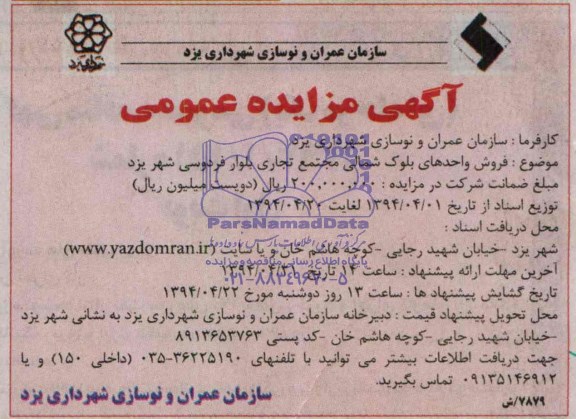 سازمان عمران و نوسازی شهرداری یزد
آگهی مزایده عمومی
کارفرما : سازمان عمران و نوسازی شهرداری یزد
موضوع : فروش واحدهای بلوک شمالی مجتمع تجاری بلوار فردوسی شهر یزد
مبلغ ضمانت شرکت در مزایده : ۲۰۰,۰۰۰,۰۰۰ ریال (دویست میلیون ریال)
توزیع اسناد از تاریخ ۱۳۹۴/۰۴/۰۱ لغایت ۱۳۹۴/۰۴/۲۰
محل دریافت اسناد :
شهر یزد -خیابان شهید رجایی -کوچه هاشم خان و یا سایت (www.yazdomran.ir)
آخرین مهلت ارائه پیشنهاد : ساعت ۱۴ تاریخ ۱۳۹۴/۰۴/۲۱
تاریخ گشایش پیشنهاد ها : ساعت ۱۳ روز دوشنبه مورخ ۱۳۹۴/۰۴/۲۲
محل تحویل پیشنهاد قیمت : دبیرخانه سازمان عمران و نوسازی شهرداری یزد به نشانی شهر یزد
-خیابان شهید رجایی -کوچه هاشم خان -کد پستی ۸۹۱۳۶۵۳۷۶۳
جهت دریافت اطلاعات بیشتر می توانید با تلفنهای ۳۶۲۲۵۱۹۰-۰۳۵ (داخلی ۱۵۰) و یا
۰۹۱۳۵۱۴۶۹۱۲ تماس بگیرید.
سازمان عمران و نوسازی شهرداری یزد
۷۸۷۹/ش
ParsNamadData
پایگاه اطلاع رسانی مناقصه و مزایده
۰۲۱-۸۸۳۴۹۶۷۰-۵